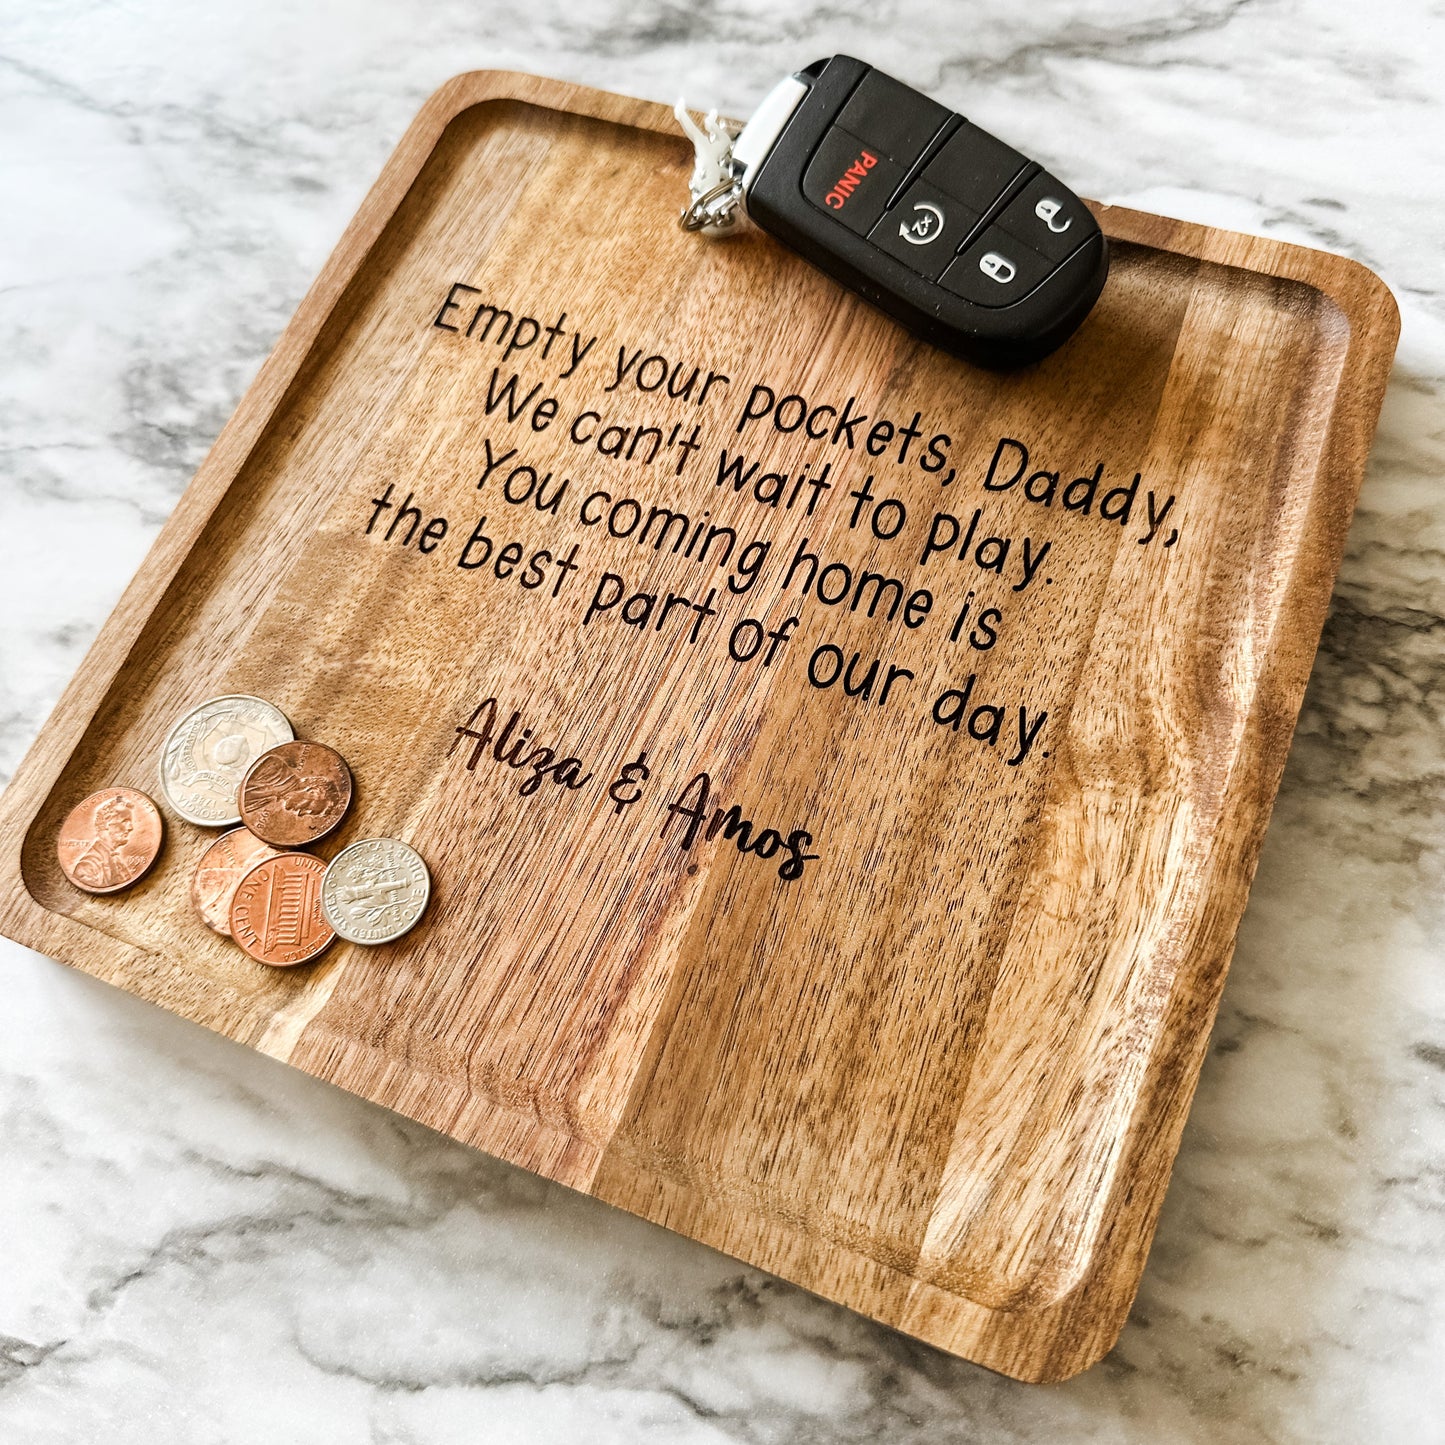 PANIC
x2
Empty your pockets, Daddy,
We can't wait to play.
You coming home is
the best part of our day.
Aliza & Amos
ONE CENT